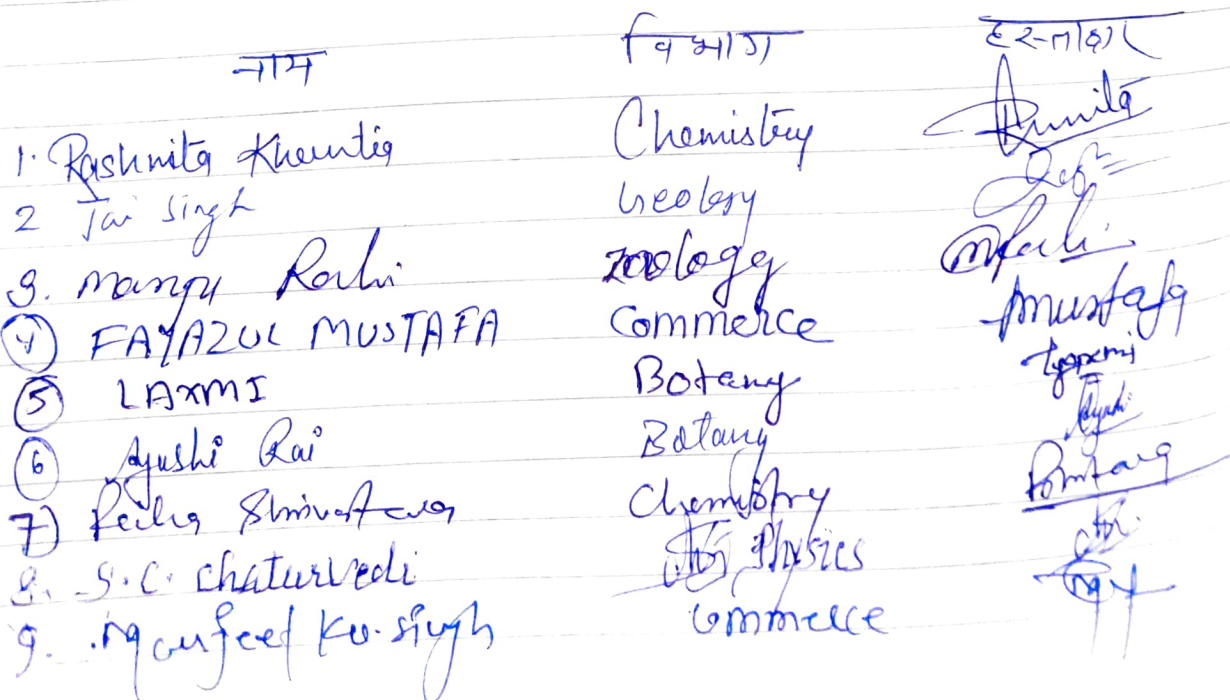 नाम विभाग हस्ताक्षर
1. Rashmita Khuntia Chemistry
2 Jai Singh Geology
3. Manju Rahi Zoology
4) FAYAZUL MUSTAFA Commerce Mustafa
5 LAXMI Botany Laxmi
6 Ayushi Rai Botany Ayushi
7) Shrivastava Chemistry
8. S.C. Chaturvedi Physics
9. Ku. Singh Commerce